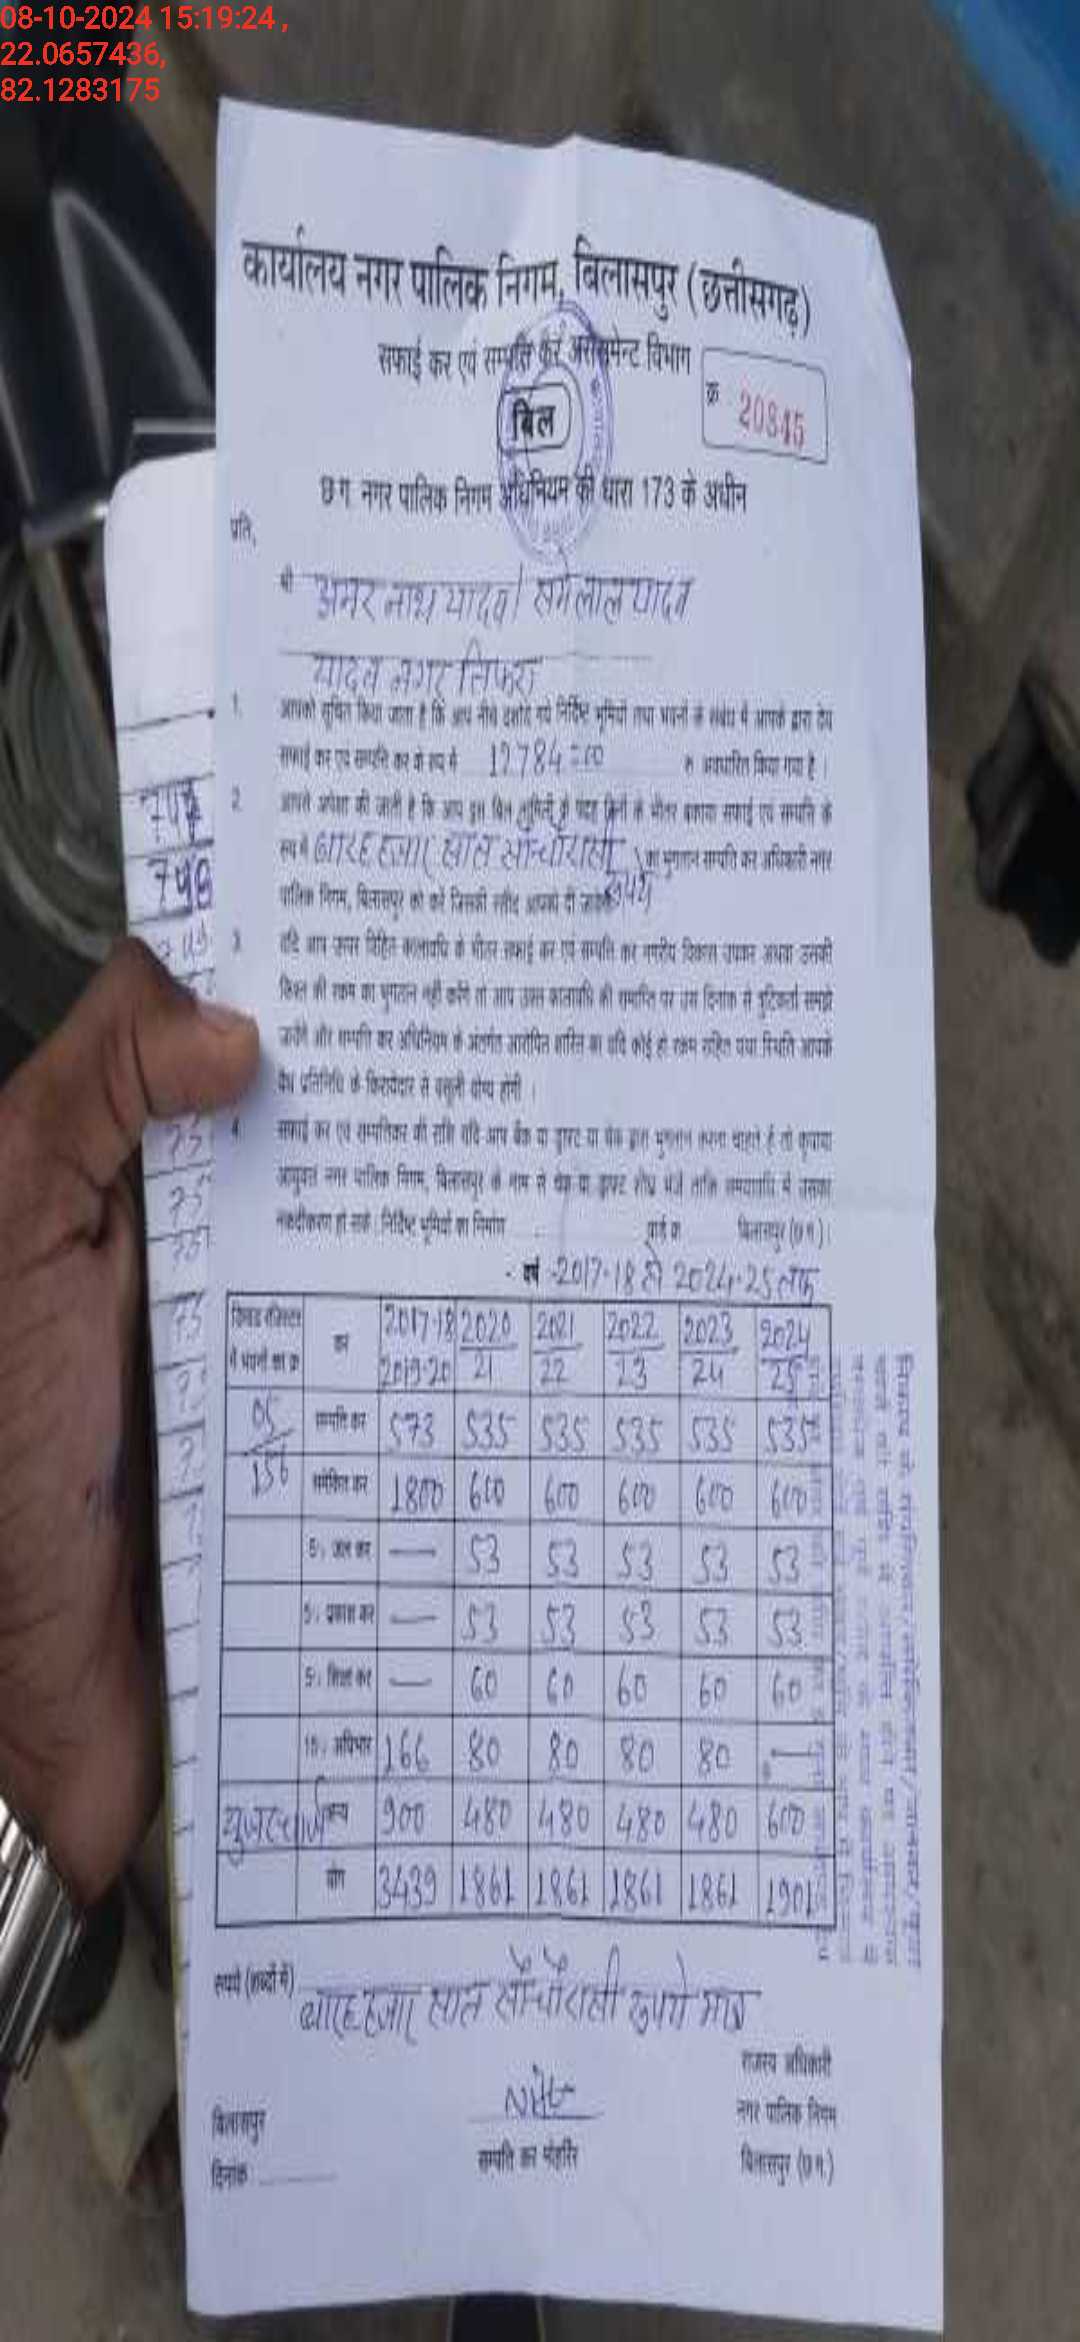 08-10-2024 15:19:24 ,
22.0657436,
82.1283175
कार्यालय नगर पालिक निगम, बिलासपुर (छत्तीसगढ़)
सफाई कर एवं सम्पत्ति कर असेसमेन्ट विभाग
क्र 20845
बिल
छ.ग. नगर पालिक निगम अधिनियम की धारा 173 के अधीन
प्रति,
श्री अमर नाथ यादव / यादव
यादव नगर तिफरा
1. आपको सूचित किया जाता है कि आप नीचे दर्शाये गये निर्दिष्ट भूमियों तथा भवनों के संबंध में आपके द्वारा देय
सफाई कर एवं सम्पत्ति कर के रूप में 12784=00 रु. अवधारित किया गया है ।
2. आपसे अपेक्षा की जाती है कि आप इस बिल के पन्द्रह दिनों के भीतर बकाया सफाई एवं सम्पत्ति के
रूप में बारह हजार सात सौ चौरासी रूपये का भुगतान सम्पत्ति कर अधिकारी नगर
पालिक निगम, बिलासपुर को करें जिसकी रसीद आपको दी जावेगी
3. यदि आप ऊपर विहित कालावधि के भीतर सफाई कर एवं सम्पत्ति कर नगरीय विकास उपकर अथवा उनकी
किश्त की रकम का भुगतान नहीं करेंगे तो आप उक्त कालावधि की समाप्ति पर उस दिनांक से त्रुटिकर्ता समझे
जायेंगे और सम्पत्ति कर अधिनियम के अंतर्गत आरोपित शास्ति का यदि कोई हो रकम सहित यथा स्थिति आपके
वैध प्रतिनिधि के किरायेदार से वसूली योग्य होगी ।
4. सफाई कर एवं सम्पत्तिकर की राशि यदि आप बैंक या ड्राफ्ट या चेक द्वारा भुगतान करना चाहते हैं तो कृपया
आयुक्त नगर पालिक निगम, बिलासपुर के नाम से चेक या ड्राफ्ट शीघ्र भेजें ताकि समयावधि में उसका
नकदीकरण हो सके । निर्दिष्ट भूमियों का निर्माण वार्ड क्र. बिलासपुर (छ.ग.) ।
वर्ष -2017-18 से 2024-25 तक
डिमांड रजिस्टर में भवनों का क्र. कर 2017-18 2019-20 2020/21 2021/22 2022/23 2023/24 2024/25
05/156 सम्पत्ति कर 573 535 535 535 535 535
समेकित कर 1800 600 600 600 600 600
5% जल कर — 53 53 53 53 53
5% प्रकाश कर — 53 53 53 53 53
5% शिक्षा कर — 60 60 60 60 60
10% अधिभार 166 80 80 80 80 —
यूजर चार्ज अन्य 900 480 480 480 480 600
योग 3439 1861 1861 1861 1861 1901
रुपये (शब्दों में) बारह हजार सात सौ चौरासी रूपये मात्र
राजस्व अधिकारी
बिलासपुर नगर पालिक निगम
दिनांक सम्पत्ति कर मोहर्रिर बिलासपुर (छ.ग.)